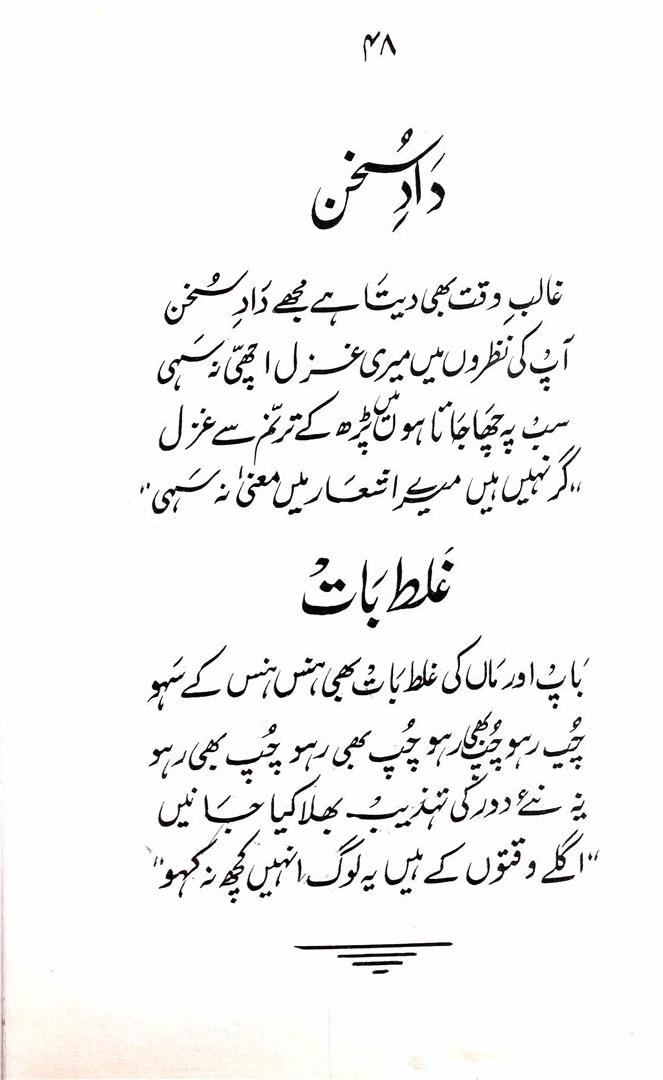 ۴۸
دَادِ سُخن
غالبِ وقت بھی دیتَا ہے مجھے دَادِ سُخن
آپ کی نظروں میں میری غزل اچھّی نہ سَہی
سب پہ چھَا جَاتا ہوں میں پڑھ کے ترنّم سے غزل
"گر نہیں ہیں میرے اشعار میں معنیٰ نہ سَہی"
غَلط بَات
بَاپ اور مَاں کی غلط بَات بھی ہنس ہنس کے سَہو
چُپ رہو چُپ بھی رہو چُپ بھی رہو چُپ بھی رہو
یہ نئے دور کی تہذیب بھلا کیا جَانیں
"اگلے وقتوں کے ہیں یہ لوگ انہیں کچھ نہ کہو"